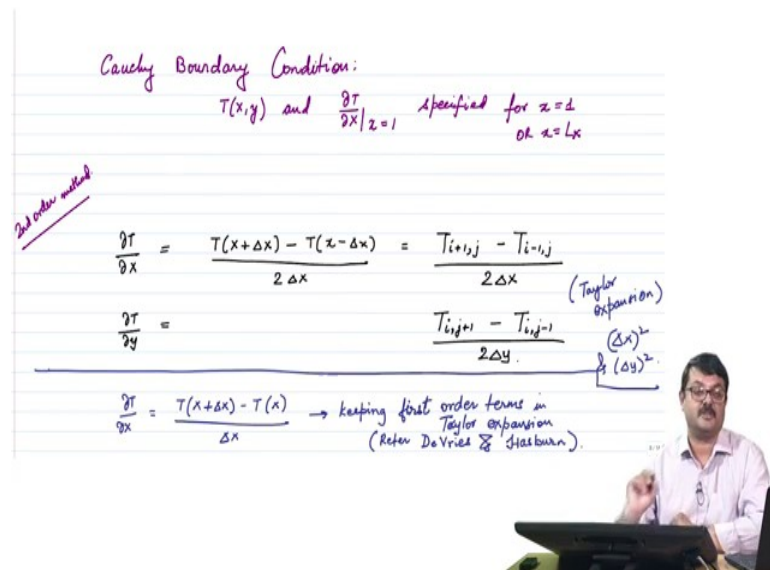 Cauchy Boundary Condition:
T(x,y) and ∂T/∂x|x=1 specified for x=1
OR x=Lx
2nd order method
∂T/∂x = T(x+Δx) - T(x-Δx) / 2Δx = Ti+1,j - Ti-1,j / 2Δx
(Taylor expansion)
∂T/∂y = Ti,j+1 - Ti,j-1 / 2Δy.
(Δx)²
& (Δy)².
∂T/∂x = T(x+Δx) - T(x) / Δx → keeping first order terms in
Taylor expansion
(Refer DeVries & Hasburn).